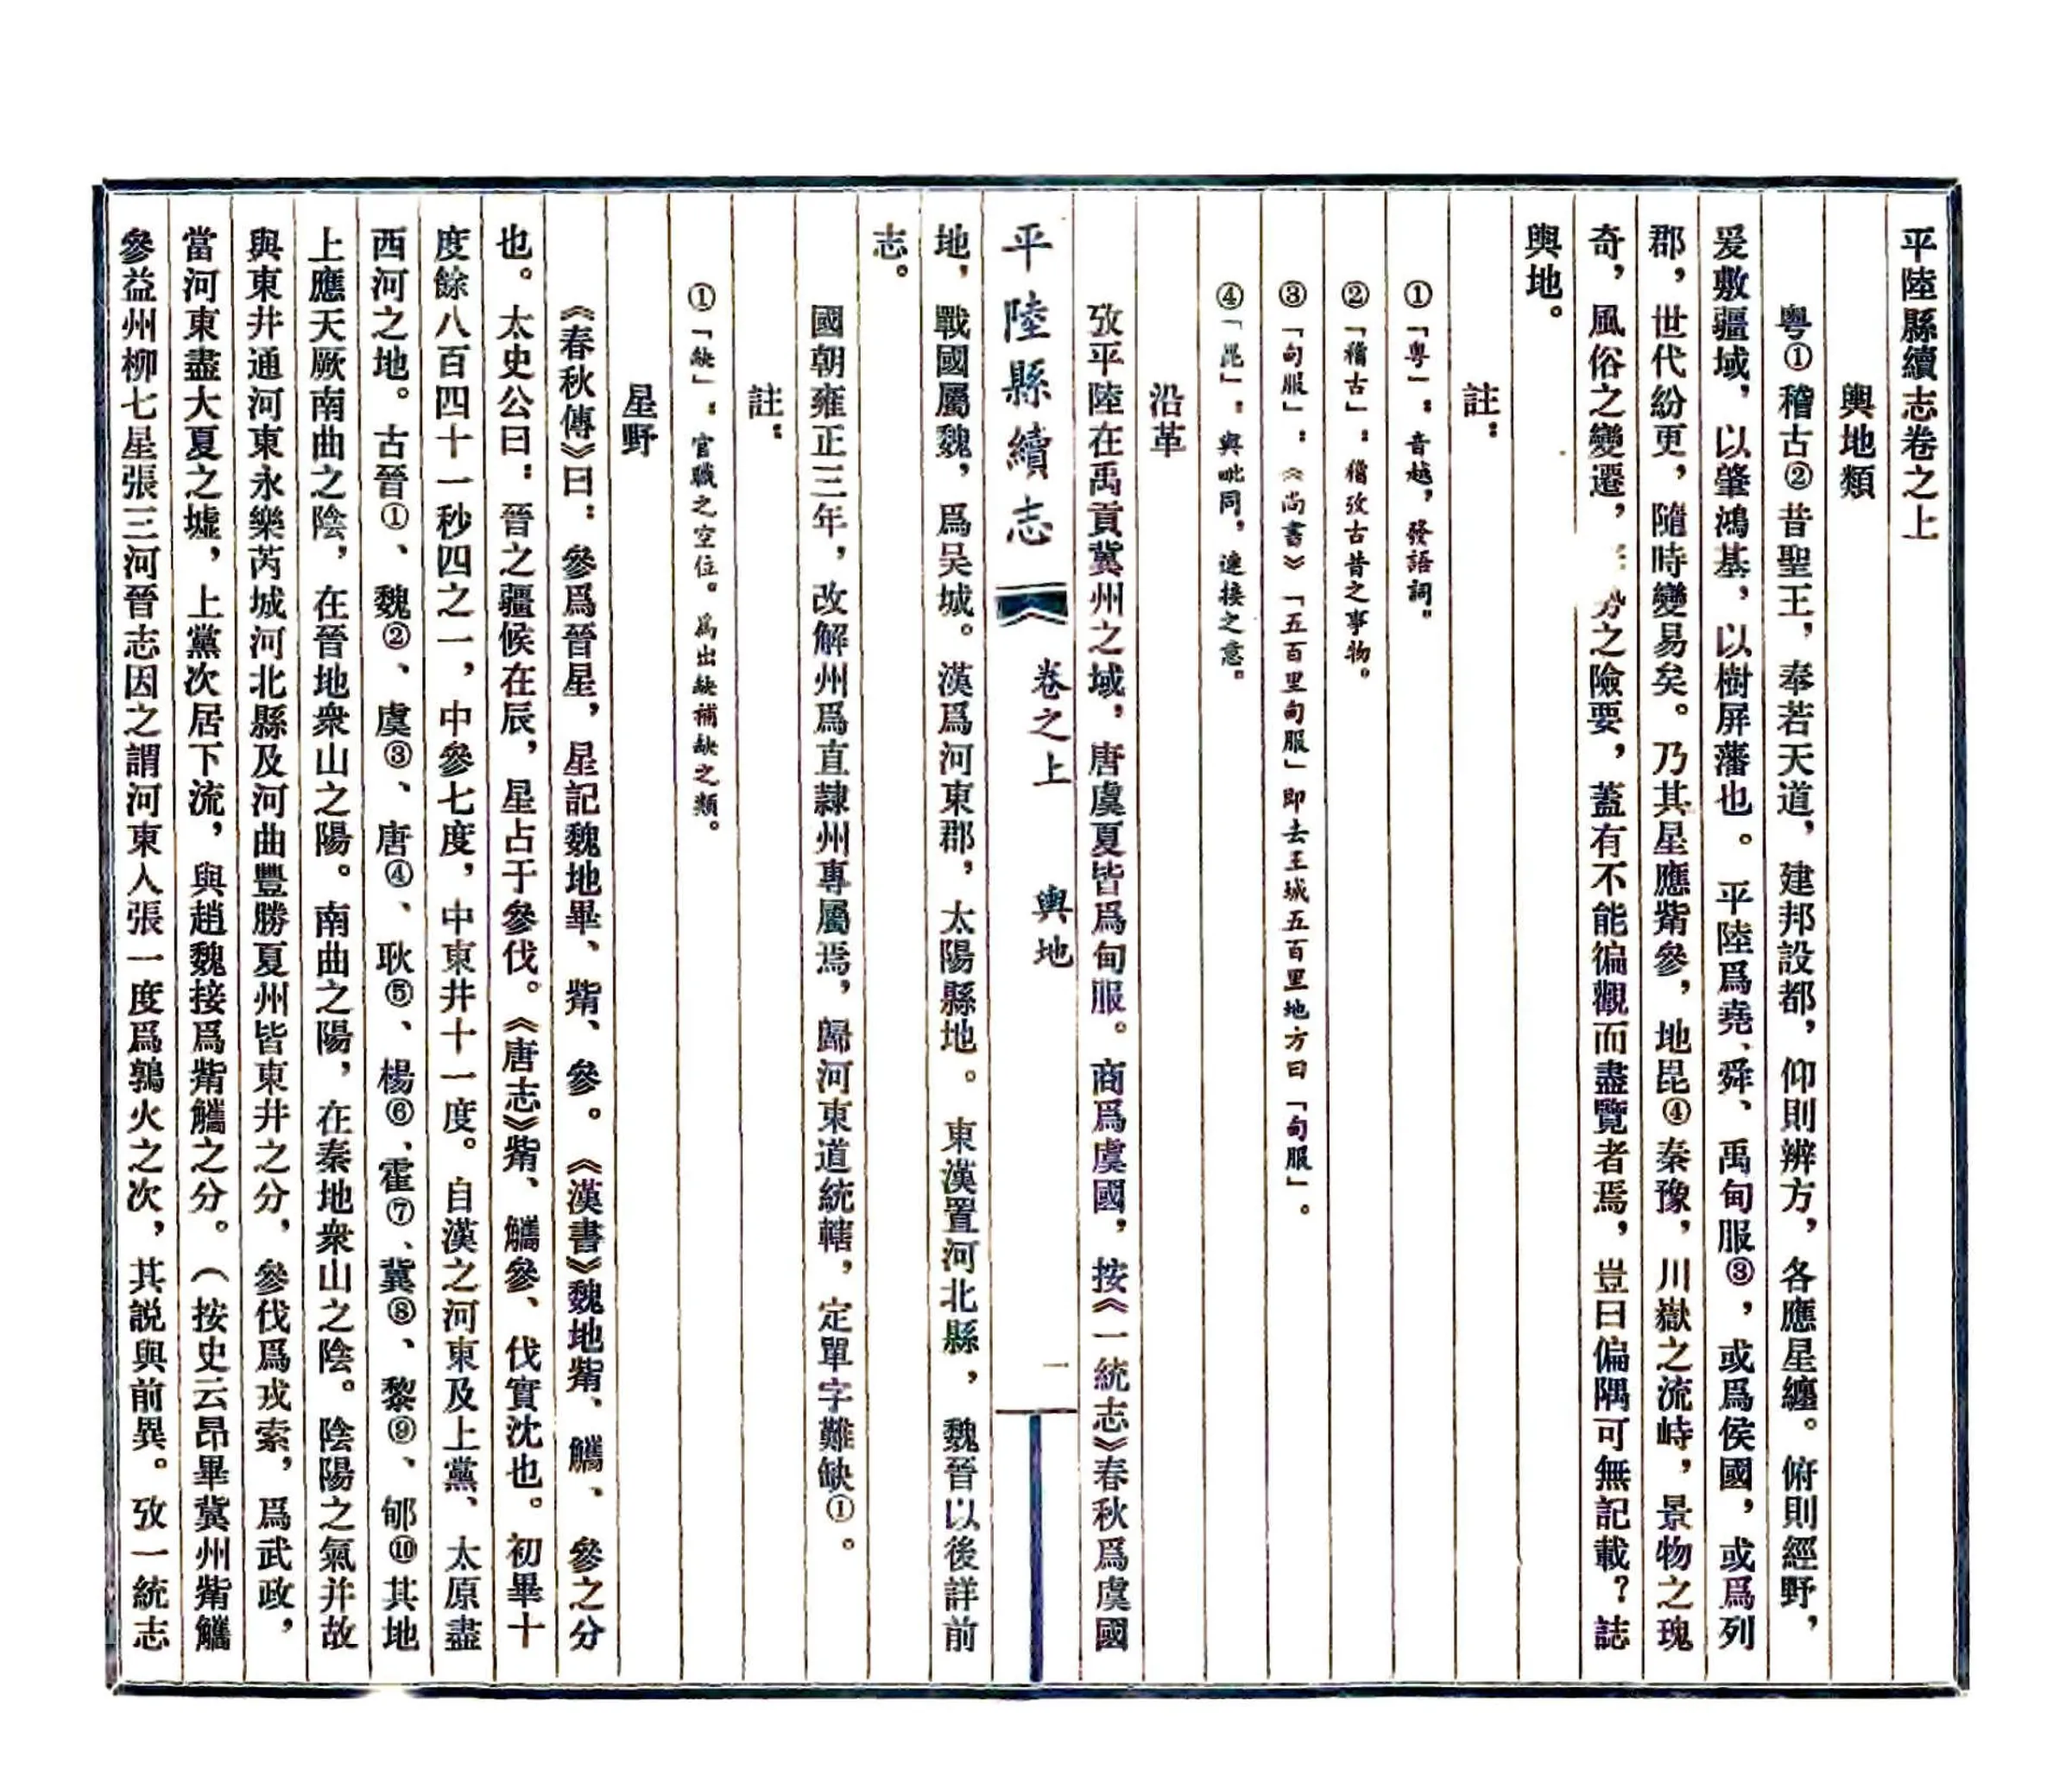 平陸縣續志卷之上
輿地類
粤①稽古②昔聖王，奉若天道，建邦設都，仰則辨方，各應星纏。俯則經野，
爰敷疆域，以肇鴻基，以樹屏藩也。平陸爲堯、舜、禹甸服③，或爲侯國，或爲列
郡，世代紛更，隨時變易矣。乃其星應觜參，地毘④秦豫，川嶽之流峙，景物之瑰
奇，風俗之變遷，之險要，蓋有不能徧觀而盡覽者焉，豈曰偏隅可無記載？誌
輿地。
註：
①「粤」：音越，發語詞。
②「稽古」：稽攷古昔之事物。
③「甸服」：《尚書》「五百里甸服」即去王城五百里地方曰「甸服」。
④「毘」：與毗同，連接之意。
沿革
攷平陸在禹貢冀州之域，唐虞夏皆爲甸服。商爲虞國，按《一統志》春秋爲虞國
平陸縣續志 卷之上 輿地 一
地，戰國屬魏，爲吴城。漢爲河東郡，太陽縣地。東漢置河北縣，魏晉以後詳前
志。
國朝雍正三年，改解州爲直隸州專屬焉，歸河東道統轄，定單字難缺①。
註：
①「缺」：官職之空位。爲出缺補缺之類。
星野
《春秋傳》曰：參爲晉星，星記魏地畢、觜、參。《漢書》魏地觜、觿、參之分
也。太史公曰：晉之疆候在辰，星占于參伐。《唐志》觜、觿參、伐實沈也。初畢十
度餘八百四十一秒四之一，中參七度，中東井十一度。自漢之河東及上黨、太原盡
西河之地。古晉①、魏②、虞③、唐④、耿⑤、楊⑥、霍⑦、冀⑧、黎⑨、郇⑩其地
上應天厥南曲之陰，在晉地衆山之陽。南曲之陽，在秦地衆山之陰。陰陽之氣并故
與東井通河東永樂芮城河北縣及河曲豐勝夏州皆東井之分，參伐爲戎索，爲武政，
當河東盡大夏之墟，上黨次居下流，與趙魏接爲觜觿之分。（按史云昂畢冀州觜觿
參益州柳七星張三河晉志因之謂河東入張一度爲鶉火之次，其説與前異。攷一統志